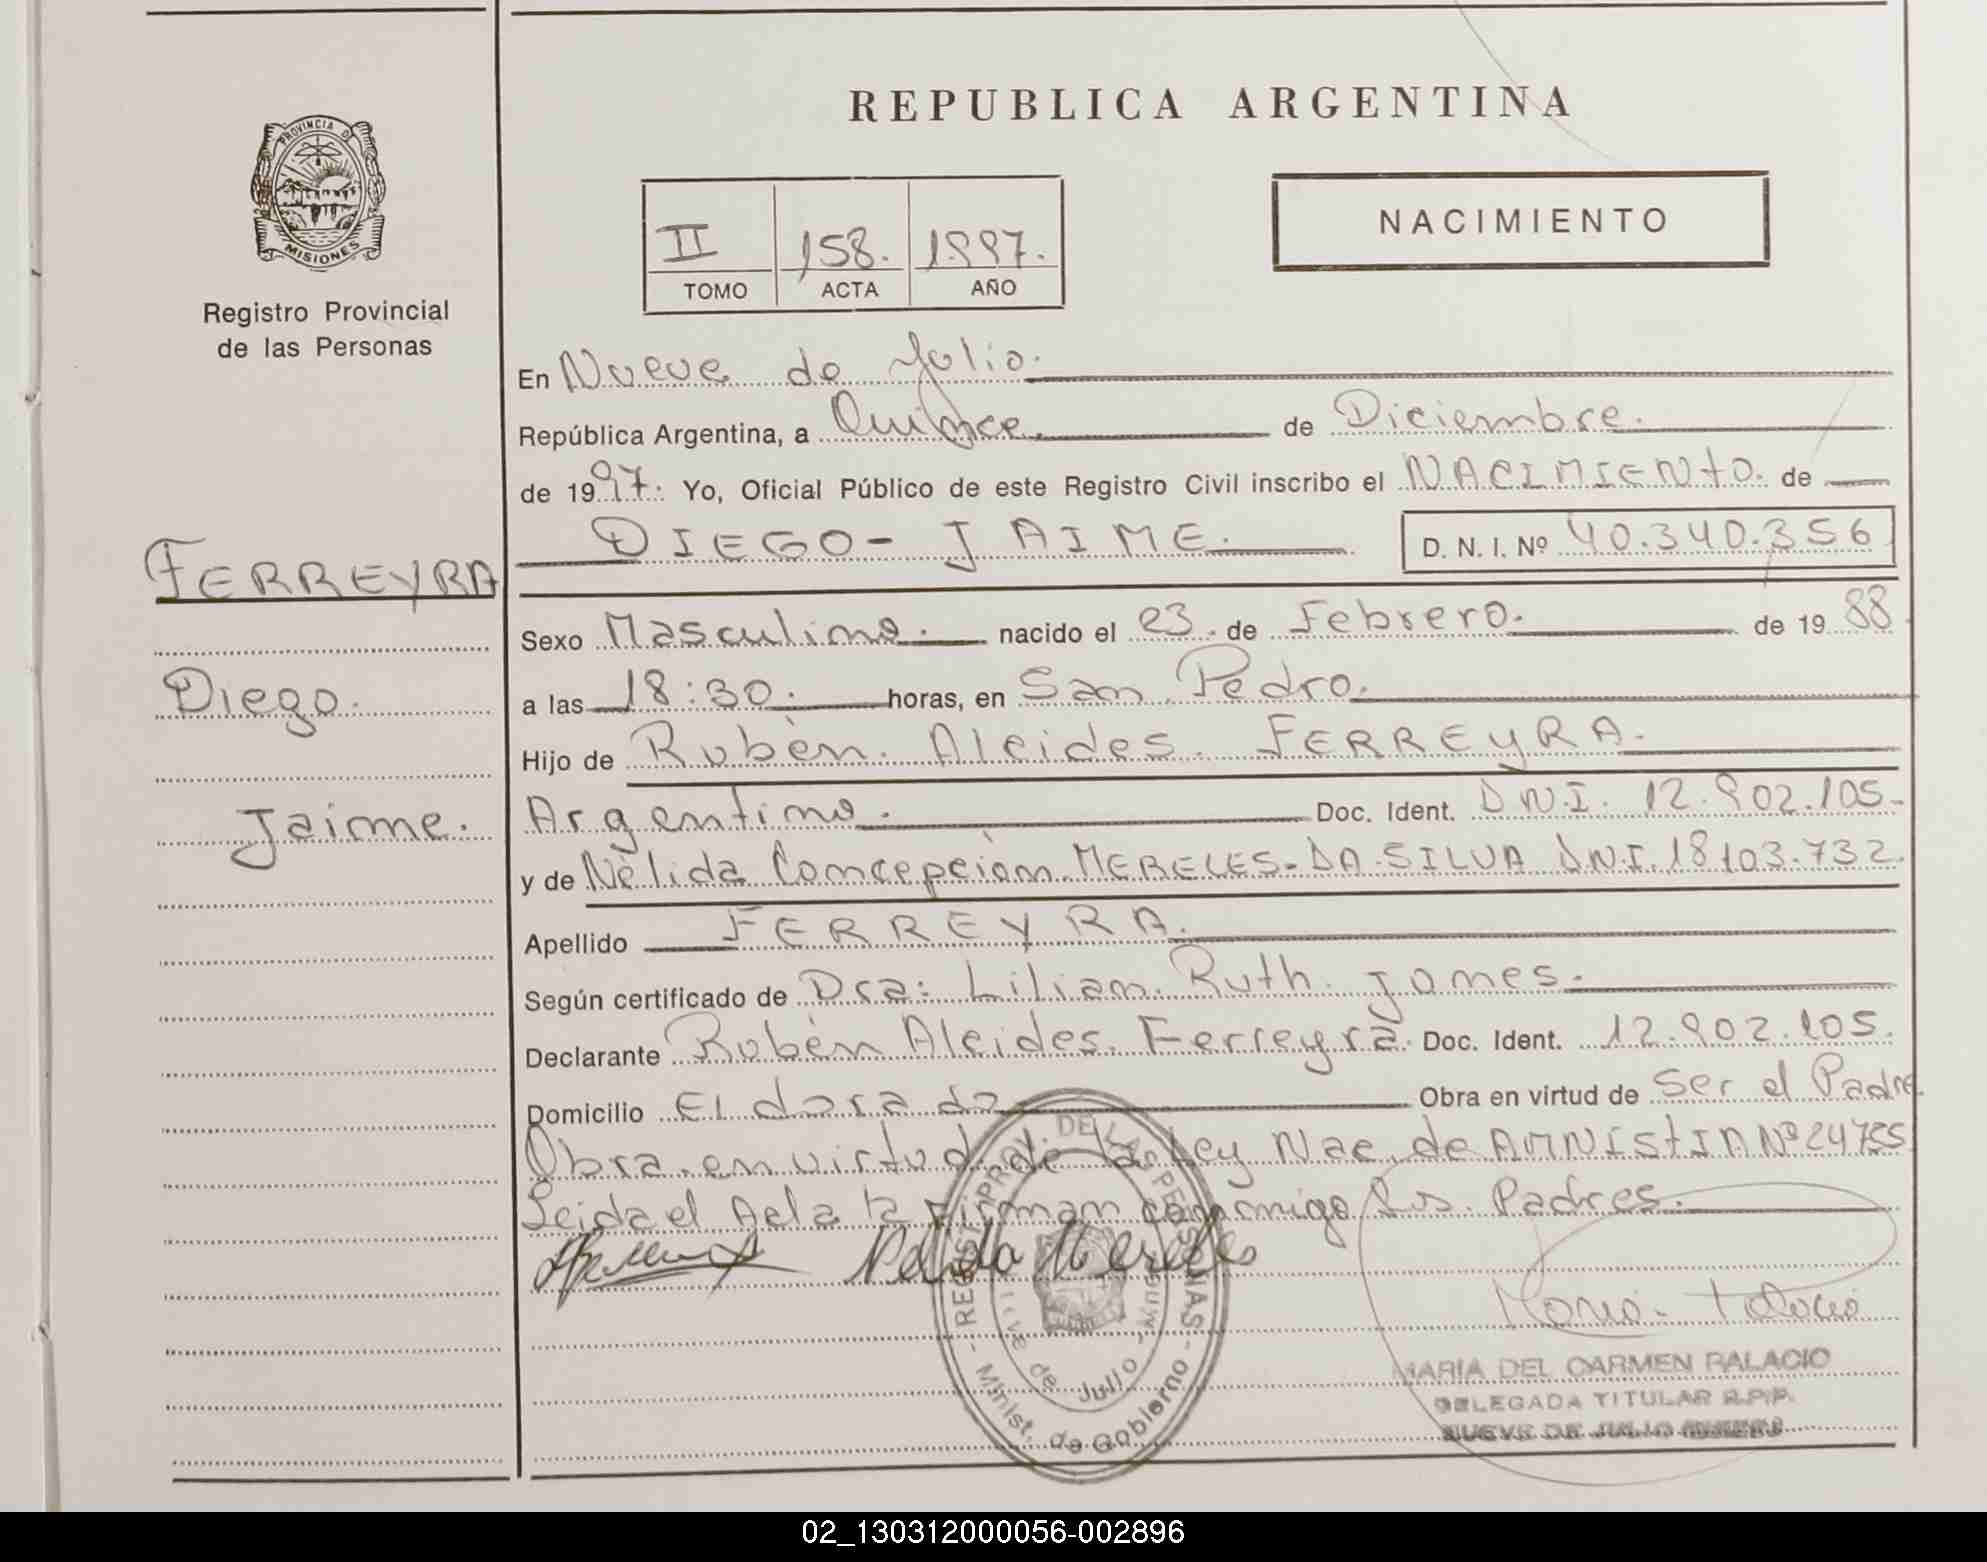 REPUBLICA ARGENTINA
PROVINCIA D MISIONES
Registro Provincial
de las Personas
II 158. 1997.
TOMO ACTA AÑO
NACIMIENTO
En Nueve de Julio.
República Argentina, a Quince. de Diciembre.
de 1997. Yo, Oficial Público de este Registro Civil inscribo el NACIMIENTO. de
DIEGO- JAIME. D. N. I. Nº 40.340.356
FERREYRA
Diego.
Jaime.
Sexo Masculino. nacido el 23. de Febrero. de 1988.
a las 18:30. horas, en San Pedro.
Hijo de Rubèn. Alcides. FERREYRA.
Argentino. Doc. Ident. D.N.I. 12.902.105.
y de Nèlida Concepciòn MERELES-DA-SILVA D.N.I. 18103.732.
Apellido FERREYRA.
Según certificado de Dra: Lilian. Ruth. Jones.
Declarante Rubèn Alcides. Ferreyra. Doc. Ident. 12.902.105.
Domicilio Eldorado Obra en virtud de Ser el Padre
Obra en virtud de la Ley Nac. de AMNIStIA Nº 24755
Leida el Acta la Firman conmigo Sus. Padres.
Nelida Mereles
REGIST. PROV. DE LAS PERSONAS - Minist. de Gobierno -
de Julio
MARIA DEL CARMEN PALACIO
DELEGADA TITULAR R.P.P.
NUEVE DE JULIO
02_130312000056-002896